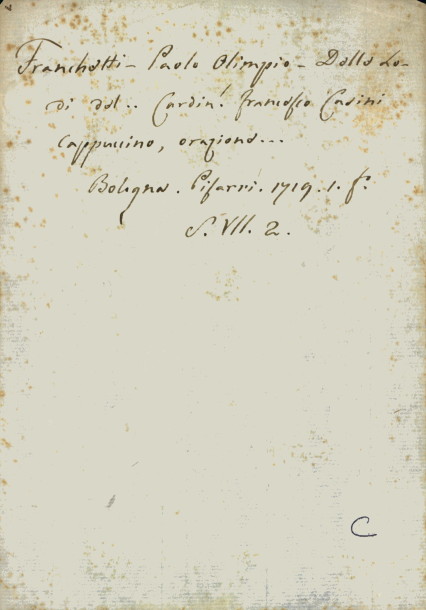 Franchetti - Paolo Olimpio - Delle Lo-
di del .. Cardin.l Francesco Casini
Cappuccino, orazione...
Bologna. Pisarri. 1719. 1. f.
S. VII. 2.
C